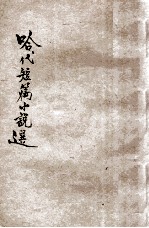 哈代短篇小說選